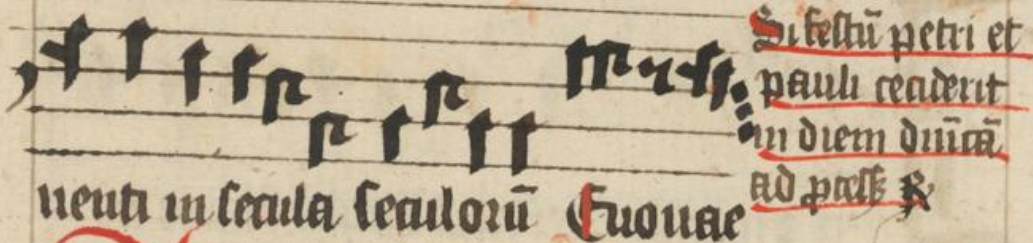 uenti in secula seculorū Euouae
Si festū petri et
pauli ceciderit
in diem dn̄icā
ad ꝓcess̄ ℟